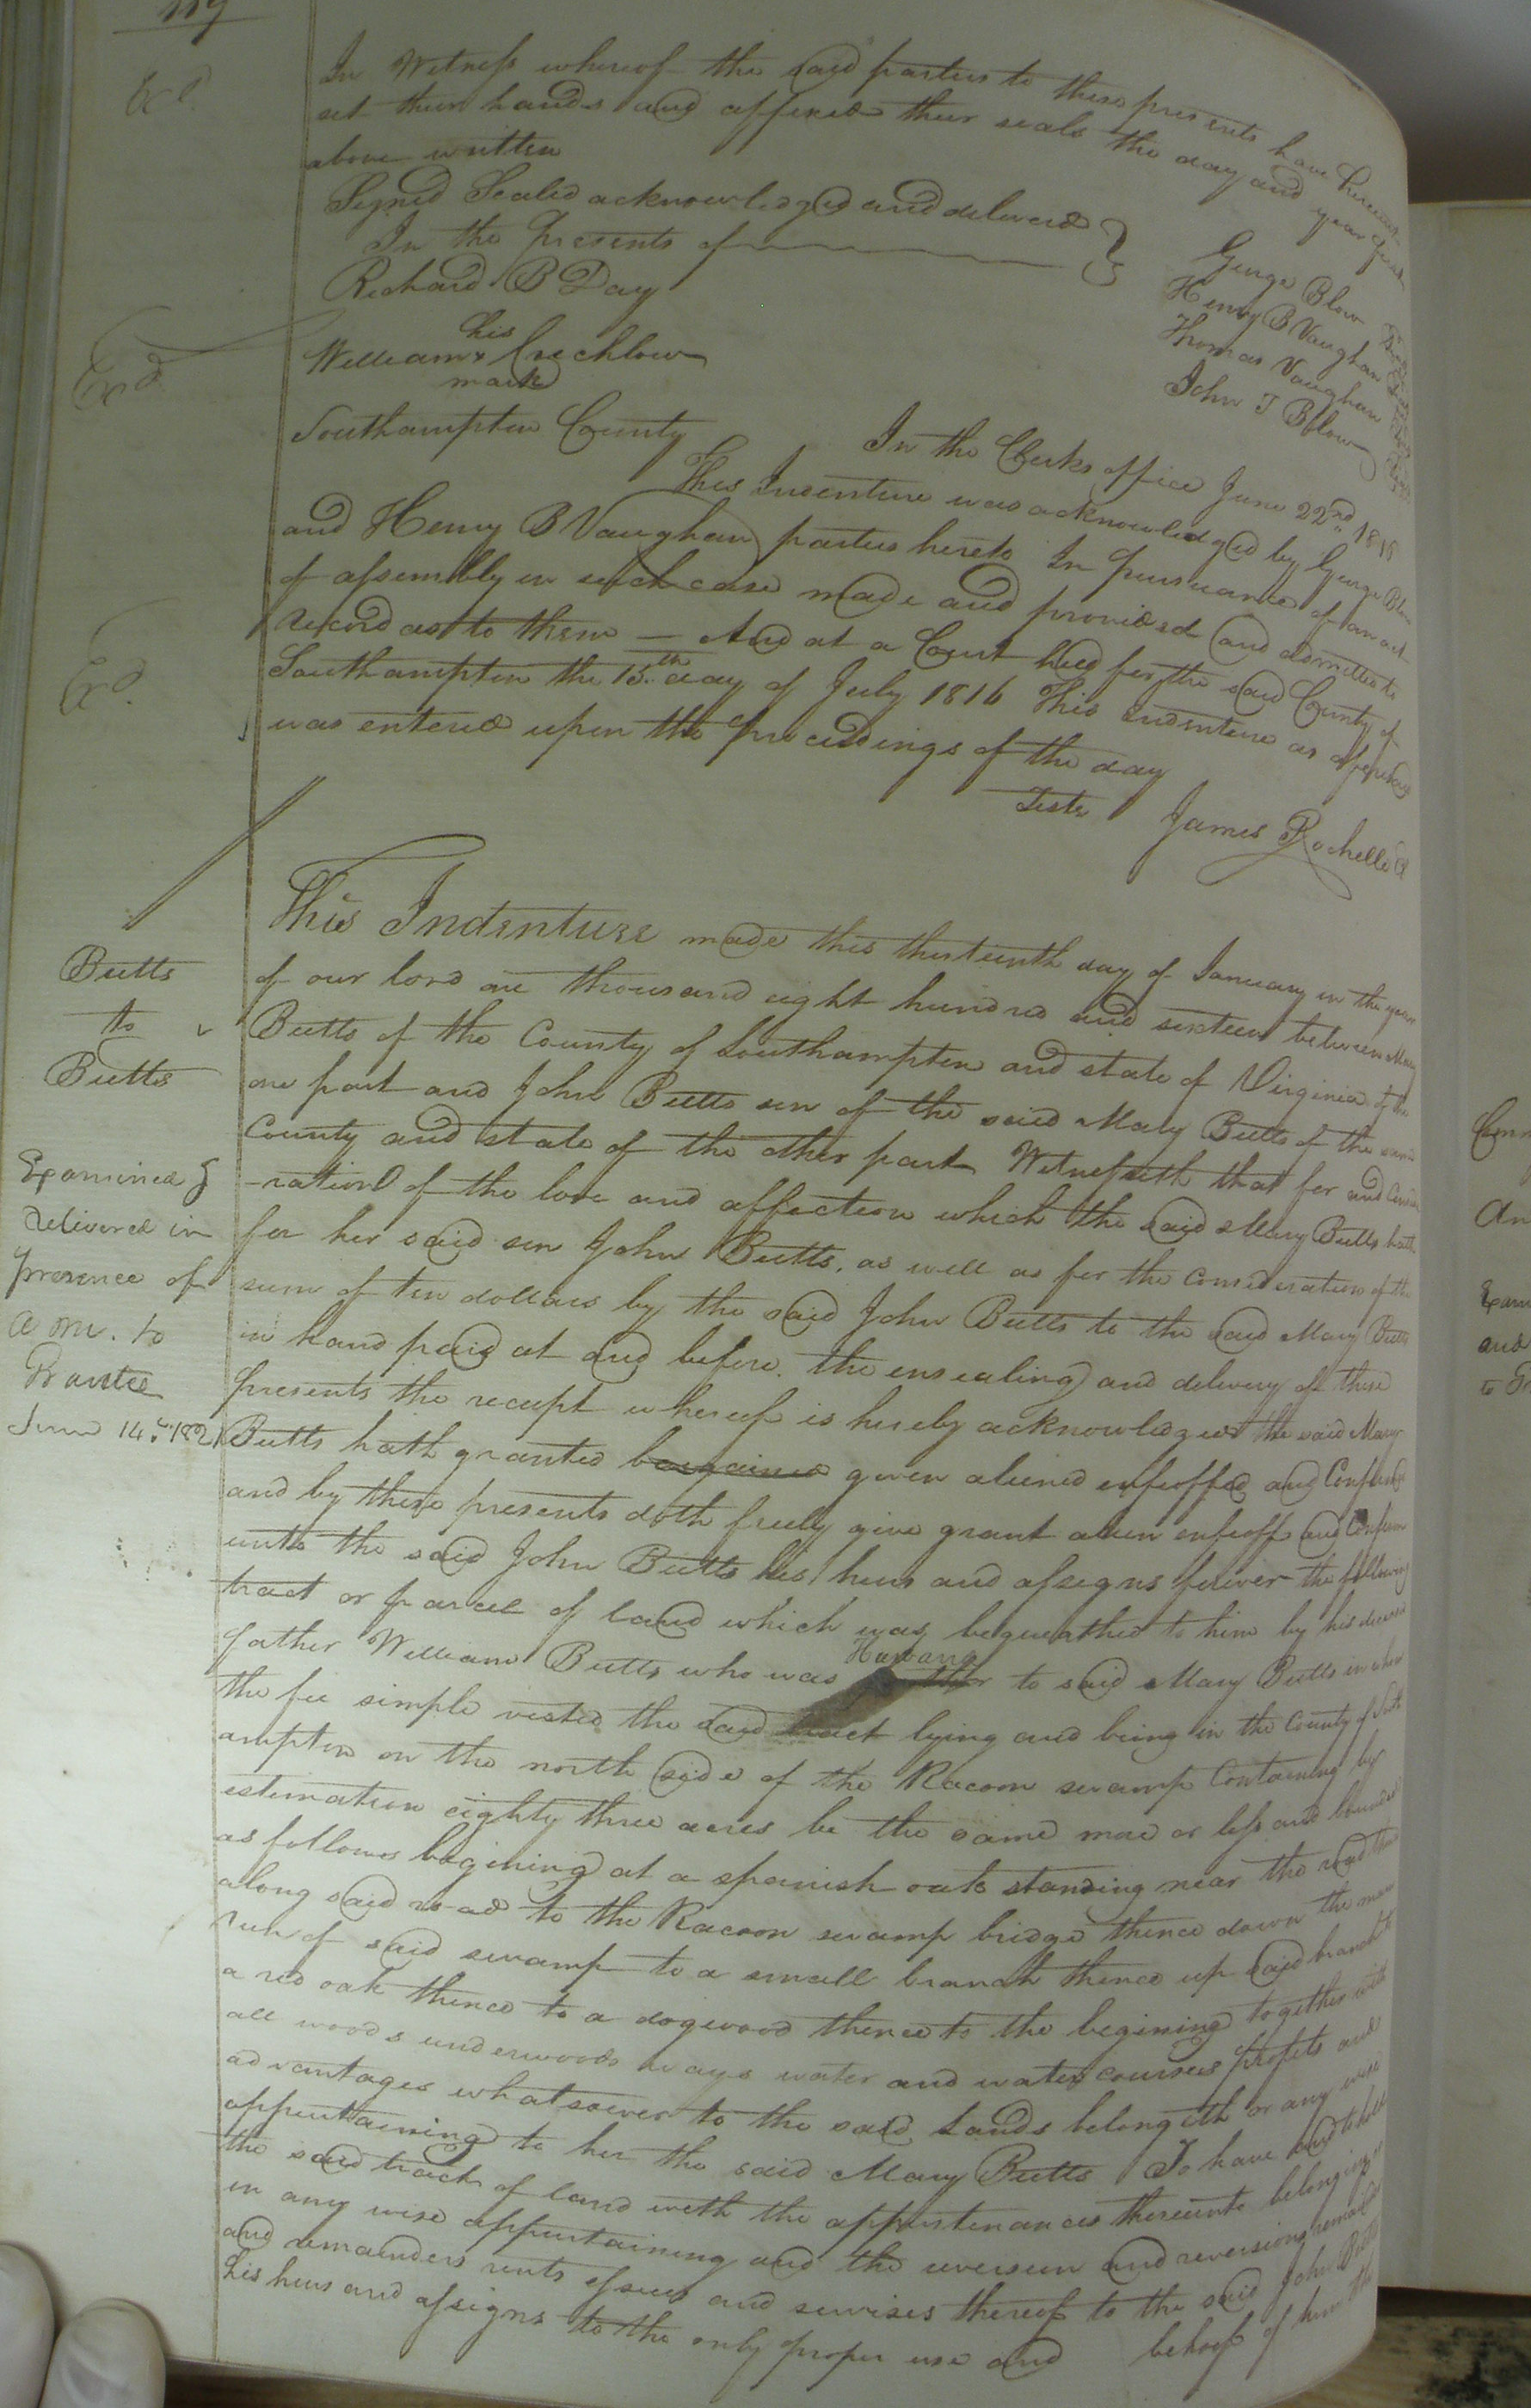 119
Exd.
In Witness whereof the said parties to these presents have hereunto
set their hands and affixed their seals the day and year first
above written
Signed Sealed acknowledged and delivered
In the Presents of
Richard B Day
his
William x Crechlow
mark
George Blow
Henry B Vaughan
Thomas Vaughan
John T Blow
Exd.
Southampton County
In the Clerks office June 22nd 181
This Indenture was acknowledged by George Blow
and Henry B Vaughan parties hereto In pursuance of an act
of assembly in such case made and provided and admitted to
record as to them — And at a Court held for the said County of
Southampton the 15th day of July 1816 This indenture as aforesaid
was entered upon the proceedings of the day
Exd.
Teste James Rochelle Cl
Butts
to
Butts
Examined &
delivered in
presence of
to
Grantee
June 14th 1821
This Indenture made this thirteenth day of January in the year
of our lord one thousand eight hundred and sixteen between Mary
Butts of the County of Southampton and state of Virginia of the
one part and John Butts son of the said Mary Butts of the same
County and state of the other part Witnesseth that for and Conside
-ration of the love and affection which the said Mary Butts hath
for her said son John Butts, as well as for the consideration of the
sum of ten dollars by the said John Butts to the said Mary Butts
in hand paid at and before the ensealing and delivery of these
presents the receipt whereof is hereby acknowledged the said Mary
Butts hath granted bargained given aliened enfeoffed and Confirmed
and by these presents doth freely give grant alien enfeoff and Confirm
unto the said John Butts his heirs and assigns forever the following
tract or parcel of land which was bequeathed to him by his deceased
father William Butts who was Husband to said Mary Butts in whom
the fee simple vested the said tract lying and being in the County of South
ampton on the north side of the Racoon swamp Containing by
estimation eighty three acres be the same more or less and bounded
as follows begining at a spanish oak standing near the road thence
along said road to the Racoon swamp bridge thence down the main
run of said swamp to a small branch thence up said branch to
a red oak thence to a dogwood thence to the begining together with
all woods underwoods ways water and water courses profits and
advantages whatsoever to the said Lands belongeth or any wise
appertaining to her the said Mary Butts To have and to hold
the said track of land with the appurtenances thereunto belonging or
in any wise appertaining and the reversion and reversions remainder
and remainders rents issues and servises thereof to the said John Butts
his heirs and assigns to the only proper use and behoof of him the